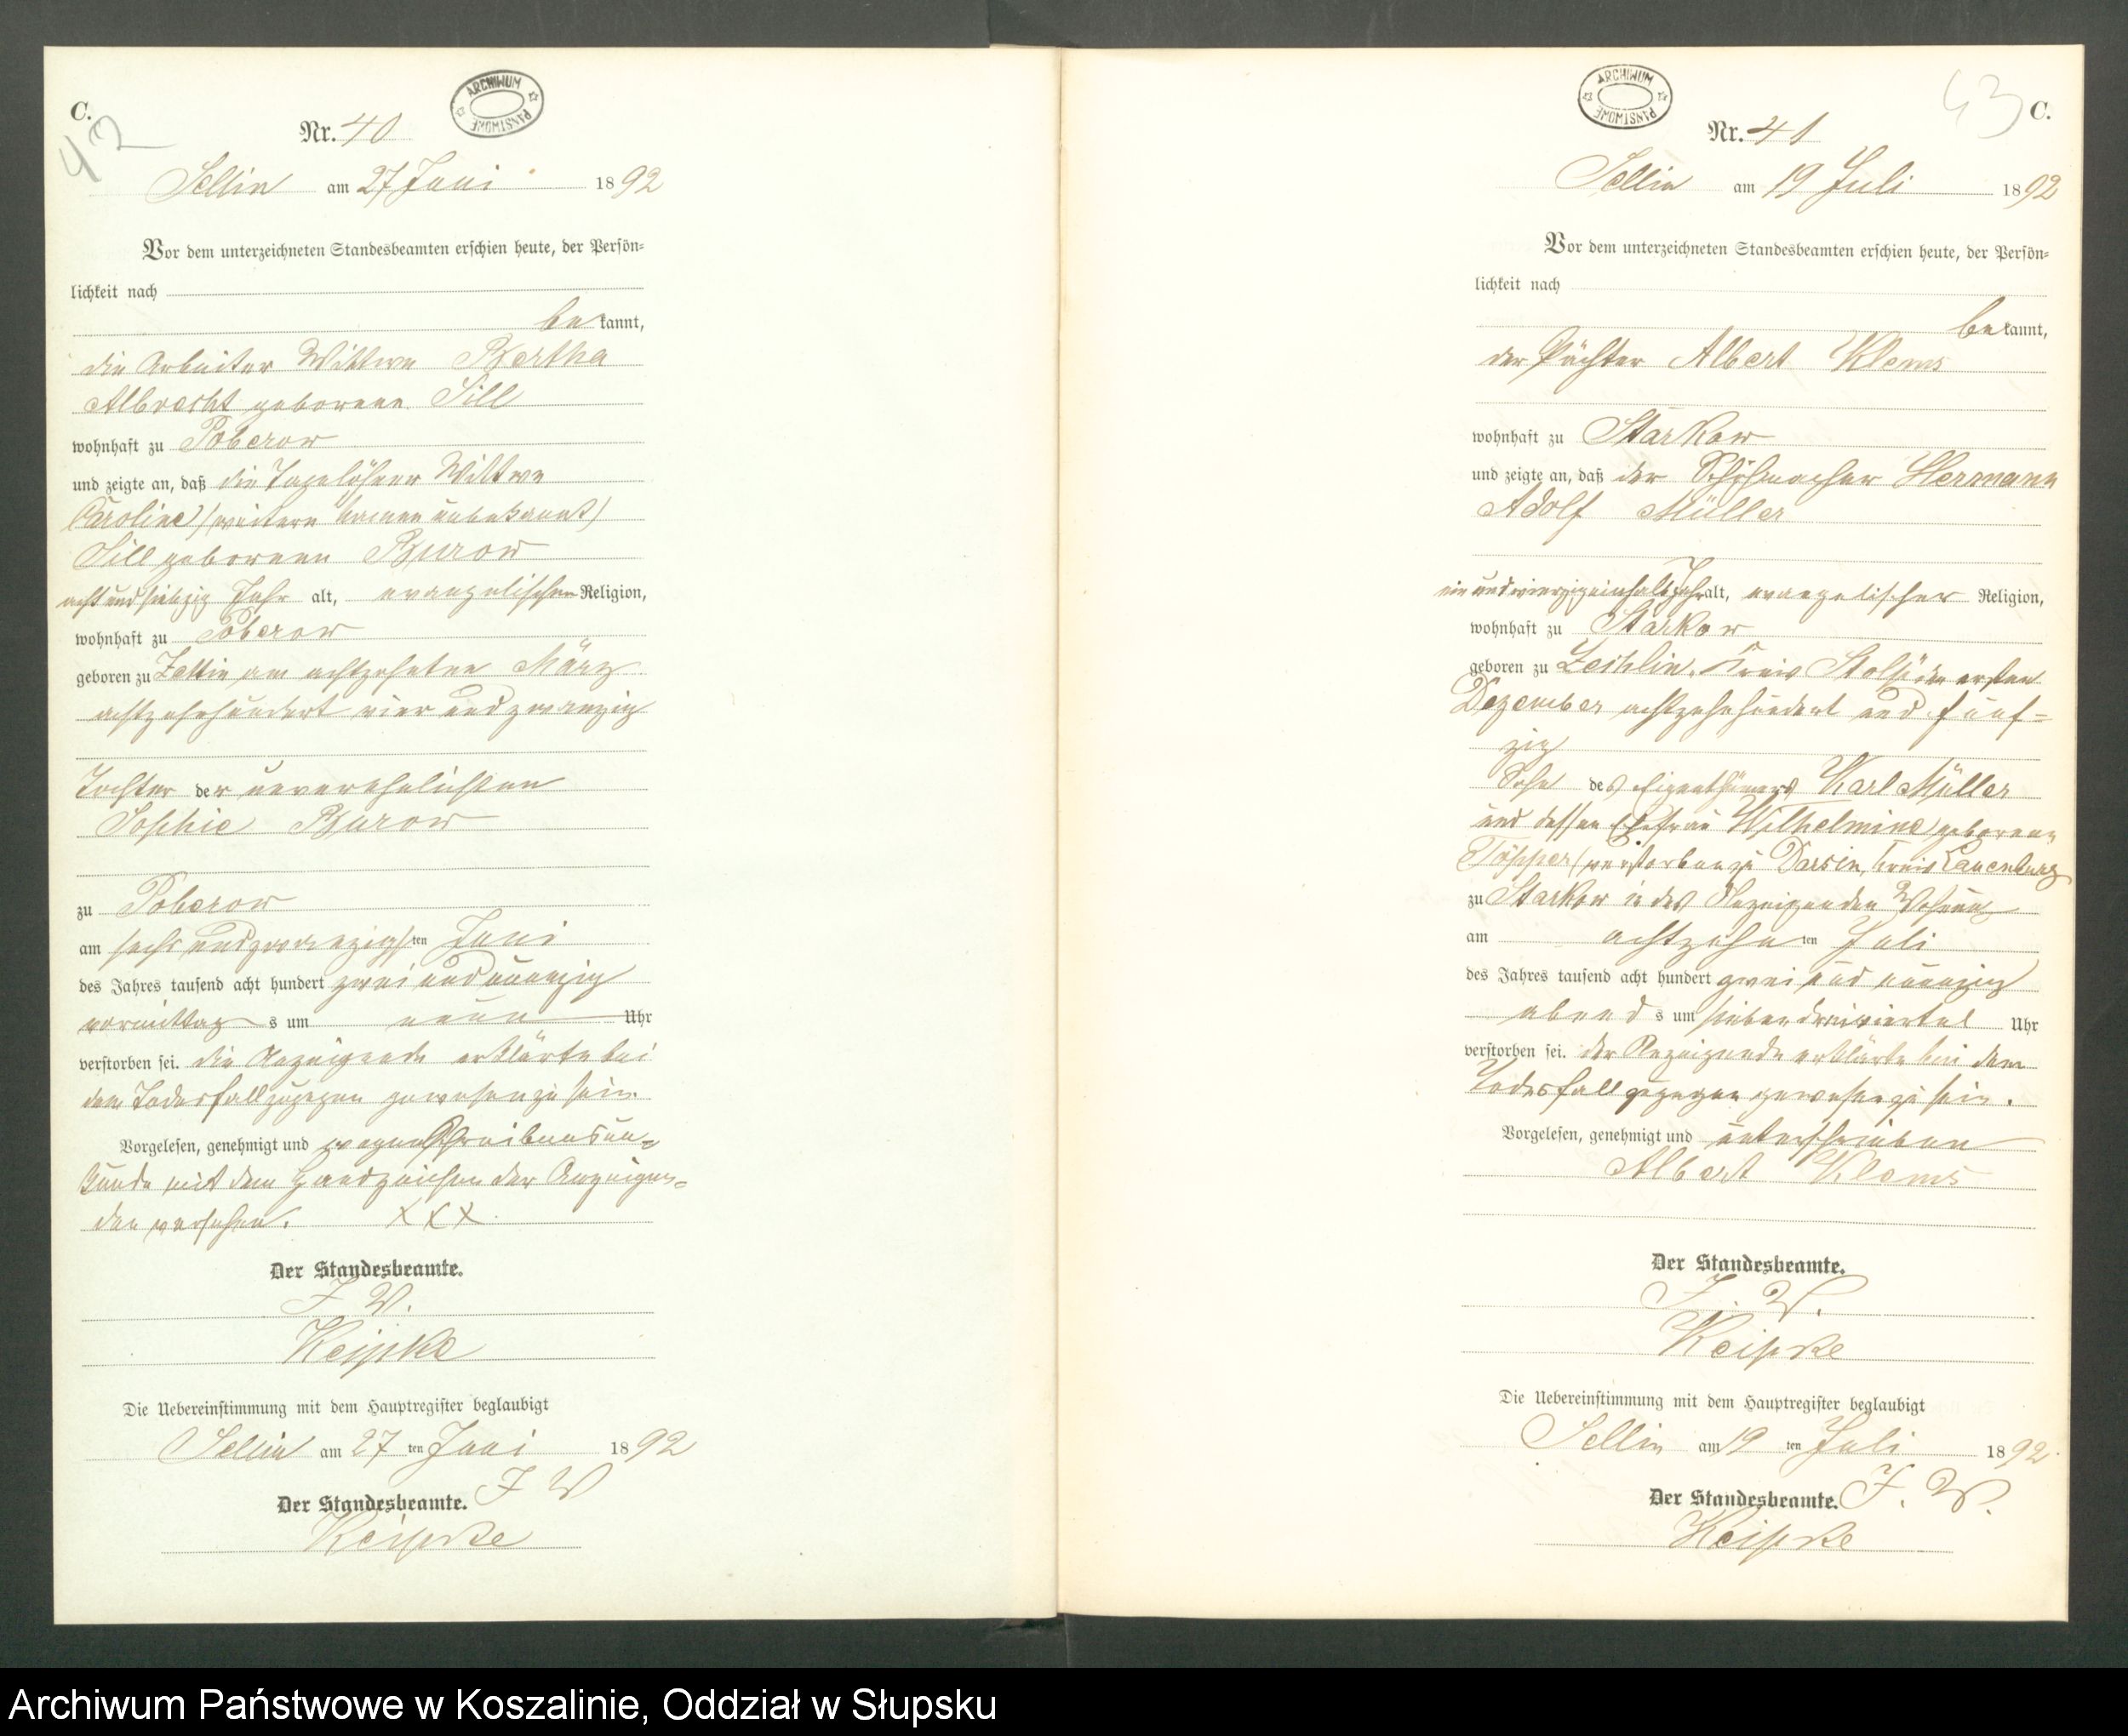 C.
42
ARCHIWUM PAŃSTWOWE
Nr. 40
Sellin am 27 Juni 1892
Vor dem unterzeichneten Standesbeamten erschien heute, der Persön-
lichkeit nach
bekannt,
die Arbeiter Wittwe Bertha
Albrecht geborene Sill
wohnhaft zu Poberow
und zeigte an, daß die Tagelöhner Wittwe
Caroline (weitere Namen unbekannt)
Sill geborene Burow
acht und siebzig Jahr alt, evangelischen Religion,
wohnhaft zu Poberow
geboren zu Zettin am achtzehnten März
achtzehnhundert vier und zwanzig
Tochter der unverehelichten
Sophie Burow
zu Poberow
am sechs und zwanzigsten Juni
des Jahres tausend acht hundert zwei und neunzig
vormittags um neun Uhr
verstorben sei. die Anzeigende erklärte bei
dem Todesfall zugegen gewesen zu sein.
Vorgelesen, genehmigt und wegen Schreibensun-
kunde mit dem Handzeichen der Anzeigen-
den versehen. XXX
Der Standesbeamte.
I. V.
Keipke
Die Uebereinstimmung mit dem Hauptregister beglaubigt
Sellin am 27 ten Juni 1892
Der Standesbeamte. I V
Keipke
ARCHIWUM PAŃSTWOWE
43
C.
Nr. 41
Sellin am 19 Juli 1892
Vor dem unterzeichneten Standesbeamten erschien heute, der Persön-
lichkeit nach
bekannt,
der Pächter Albert Klems
wohnhaft zu Starkow
und zeigte an, daß der Schuhmacher Hermann
Adolf Müller
ein und vierzigeinhalb Jahr alt, evangelischer Religion,
wohnhaft zu Starkow
geboren zu Kreis Stolp den ersten
Dezember achtzehnhundert und fünf-
zig
Sohn des Eigenthümers Karl Müller
und dessen Ehefrau Wilhelmine geborene
Töpper (verstorben zu Darsin, Kreis Lauenburg
zu Starkow in des Anzeigenden Wohnung
am achtzehnten Juli
des Jahres tausend acht hundert zwei und neunzig
abends um sieben dreiviertel Uhr
verstorben sei. der Anzeigende erklärte bei dem
Todesfall zugegen gewesen zu sein.
Vorgelesen, genehmigt und unterschrieben
Albert Klems
Der Standesbeamte.
I. V.
Keipke
Die Uebereinstimmung mit dem Hauptregister beglaubigt
Sellin am 19 ten Juli 1892.
Der Standesbeamte. I. V.
Keipke
Archiwum Państwowe w Koszalinie, Oddział w Słupsku